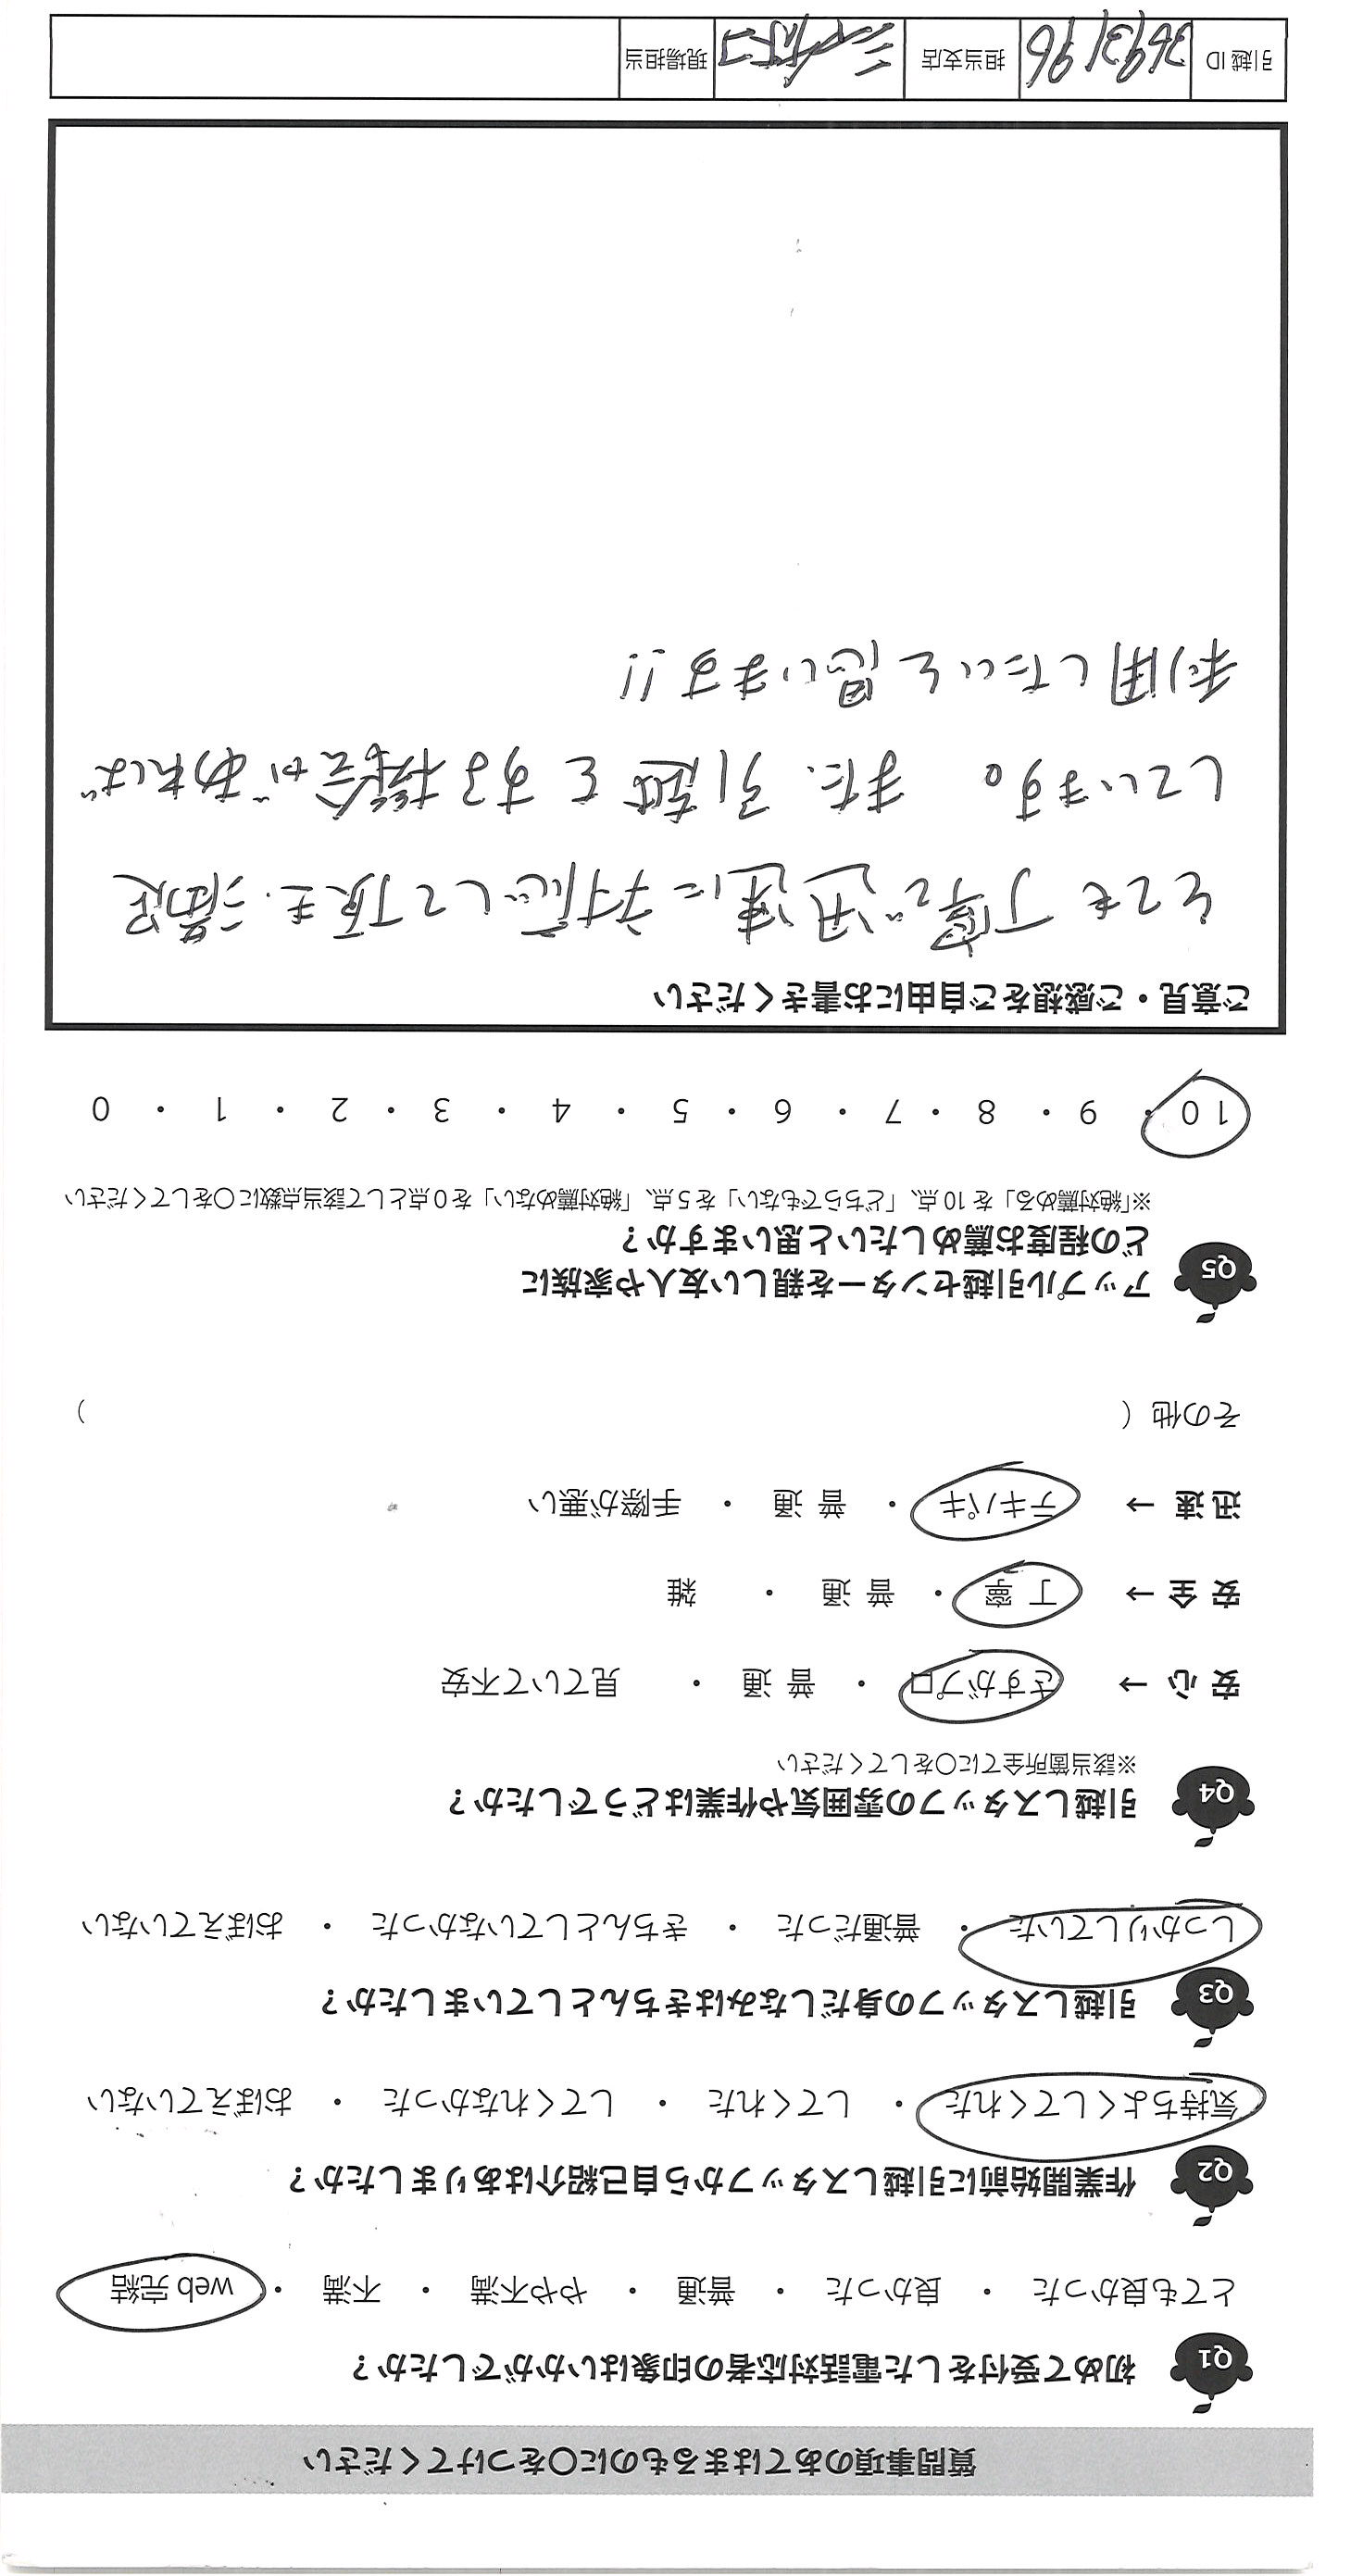 質問事項のあてはまるものに〇をつけてください
Q1 初めて受付をした電話対応者の印象はいかがでしたか？
とても良かった ・ 良かった ・ 普通 ・ やや不満 ・ 不満 ・ web 完結
Q2 作業開始前に引越しスタッフから自己紹介はありましたか？
気持ちよくしてくれた ・ してくれた ・ してくれなかった ・ おぼえていない
Q3 引越しスタッフの身だしなみはきちんとしていましたか？
しっかりしていた ・ 普通だった ・ きちんとしていなかった ・ おぼえていない
Q4 引越しスタッフの雰囲気や作業はどうでしたか？
※該当箇所全てに〇をしてください
安心 → さすがプロ ・ 普通 ・ 見ていて不安
安全 → 丁寧 ・ 普通 ・ 雑
迅速 → テキパキ ・ 普通 ・ 手際が悪い
その他（ ）
Q5 アップル引越センターを親しい友人や家族に
どの程度お薦めしたいと思いますか？
※「絶対薦める」を 10 点、「どちらでもない」を 5 点、「絶対薦めない」を 0 点として該当点数に〇をしてください
10 ・ 9 ・ 8 ・ 7 ・ 6 ・ 5 ・ 4 ・ 3 ・ 2 ・ 1 ・ 0
ご意見・ご感想をご自由にお書きください
とても丁寧で迅速に対応して頂き、満足
しています。 また、引越をする機会があれば
利用したいと思います!!
引越 ID 3693196 担当支店 現場担当